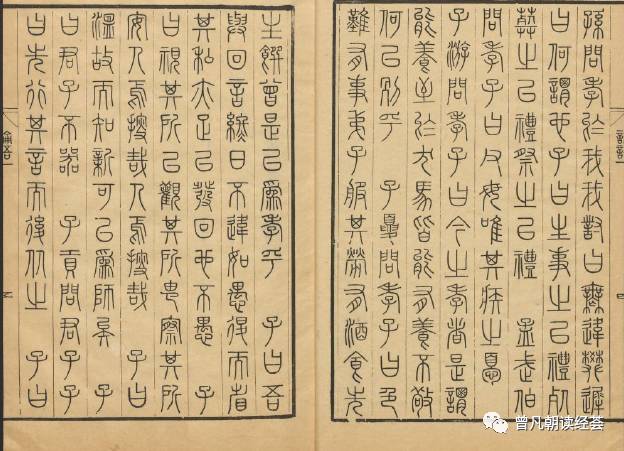 孫問孝於我我對曰無違樊遲
曰何謂也子曰生事之以禮死
葬之以禮祭之以禮　孟武伯
問孝子曰父母唯其疾之憂
子游問孝子曰今之孝者是謂
能養至於犬馬皆能有養不敬
何以別乎　子夏問孝子曰色
難有事弟子服其勞有酒食先
生饌曾是以為孝乎　子曰吾
與回言終日不違如愚退而省
其私亦足以發回也不愚　子
曰視其所以觀其所由察其所
安人焉廋哉人焉廋哉　子曰
溫故而知新可以為師矣　子
曰君子不器　子貢問君子子
曰先行其言而後從之　子曰
論語
曾凡朝读经荟